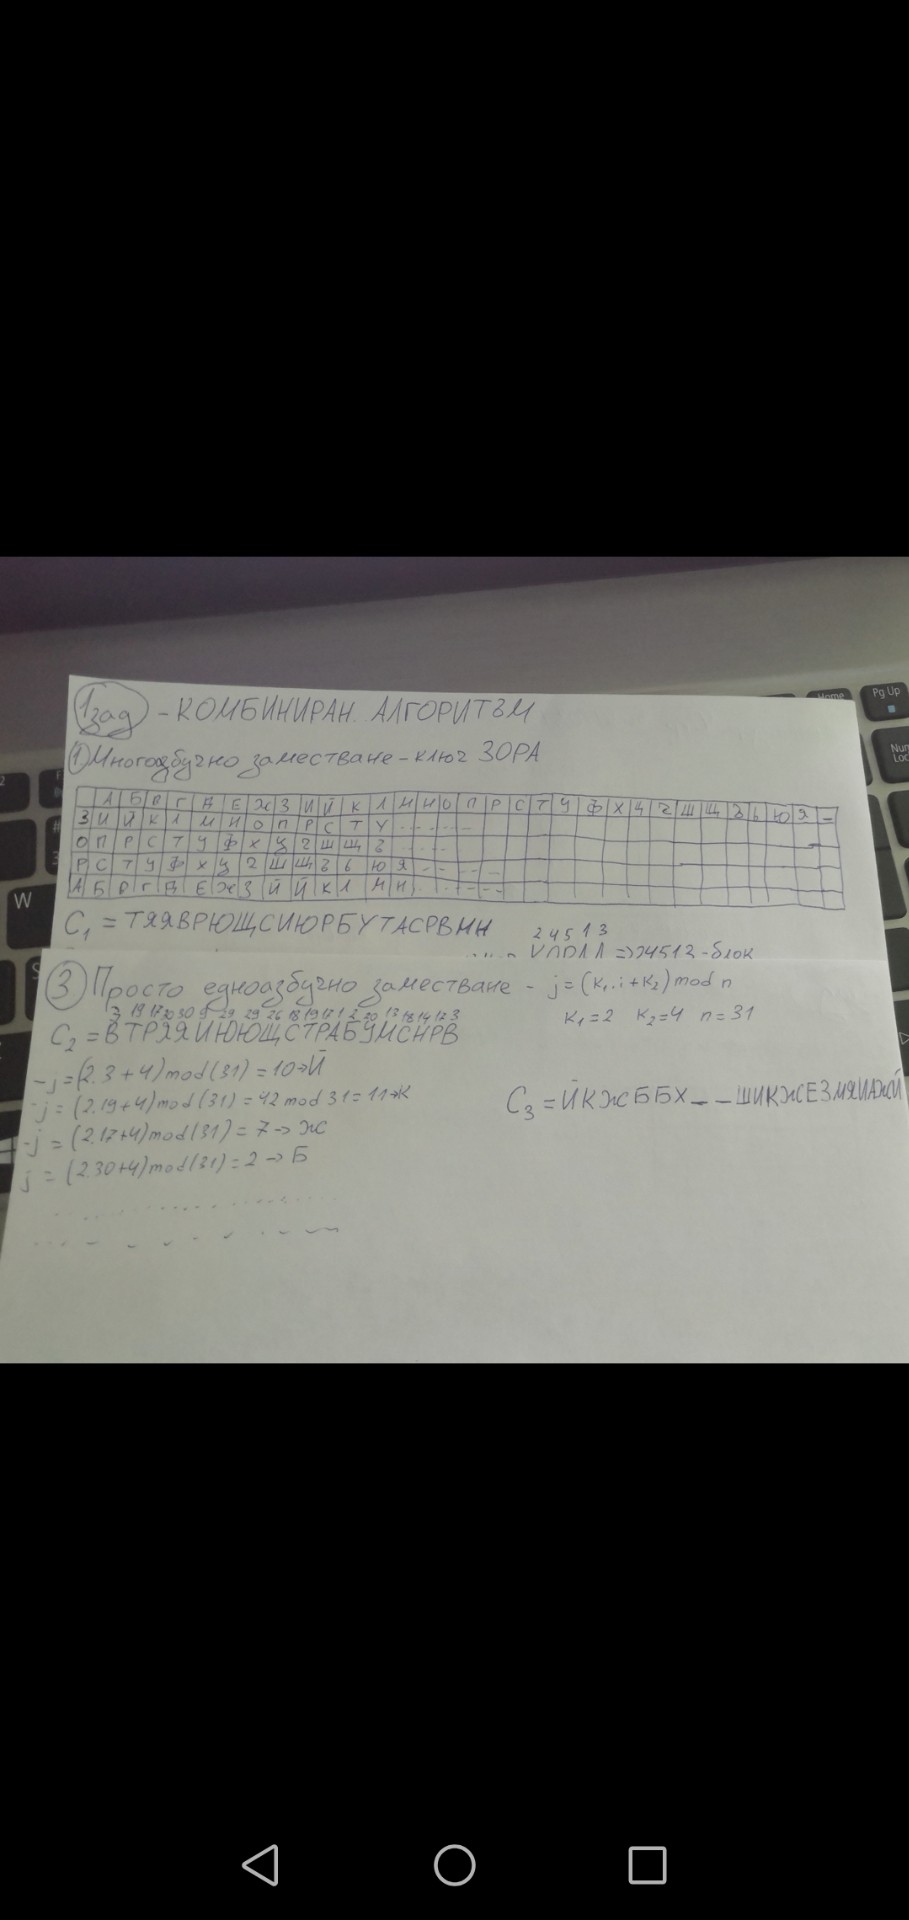 1зад - КОМБИНИРАН. АЛГОРИТЪМ
1 Многоазбучно заместване - ключ ЗОРА
А Б В Г Д Е Ж З И Й К Л М Н О П Р С Т У Ф Х Ц Ч Ш Щ Ъ Ь Ю Я -
З И Й К Л М Н О П Р С Т У
О П Р С Т У Ф Х Ц Ч Ш Щ Ъ
Р С Т У Ф Х Ц Ч Ш Щ Ъ Ь Ю Я
А Б В Г Д Е Ж З Й Й К Л М Н
C1 = ТЯЯВРЮЩСИЮРБУТАСРВМН
2 4 5 1 3
=> 24513 - блок
3 Просто едноазбучно заместване - j = (K1.i + K2) mod n
3 19 17 30 30 9 29 29 26 18 19 17 1 2 20 13 18 14 17 3
K1 = 2 K2 = 4 n = 31
C2 = ВТРЯЯИЮЮЩСТРАБУМСНРВ
- j = (2.3 + 4) mod (31) = 10 -> Й
- j = (2.19 + 4) mod (31) = 42 mod 31 = 11 -> К
C3 = ЙКЖББХ_ _ШИКЖЕЗМЯИАЖЙ
- j = (2.17 + 4) mod (31) = 7 -> Ж
j = (2.30 + 4) mod (31) = 2 -> Б
Home
Pg Up
Num
Loc
W